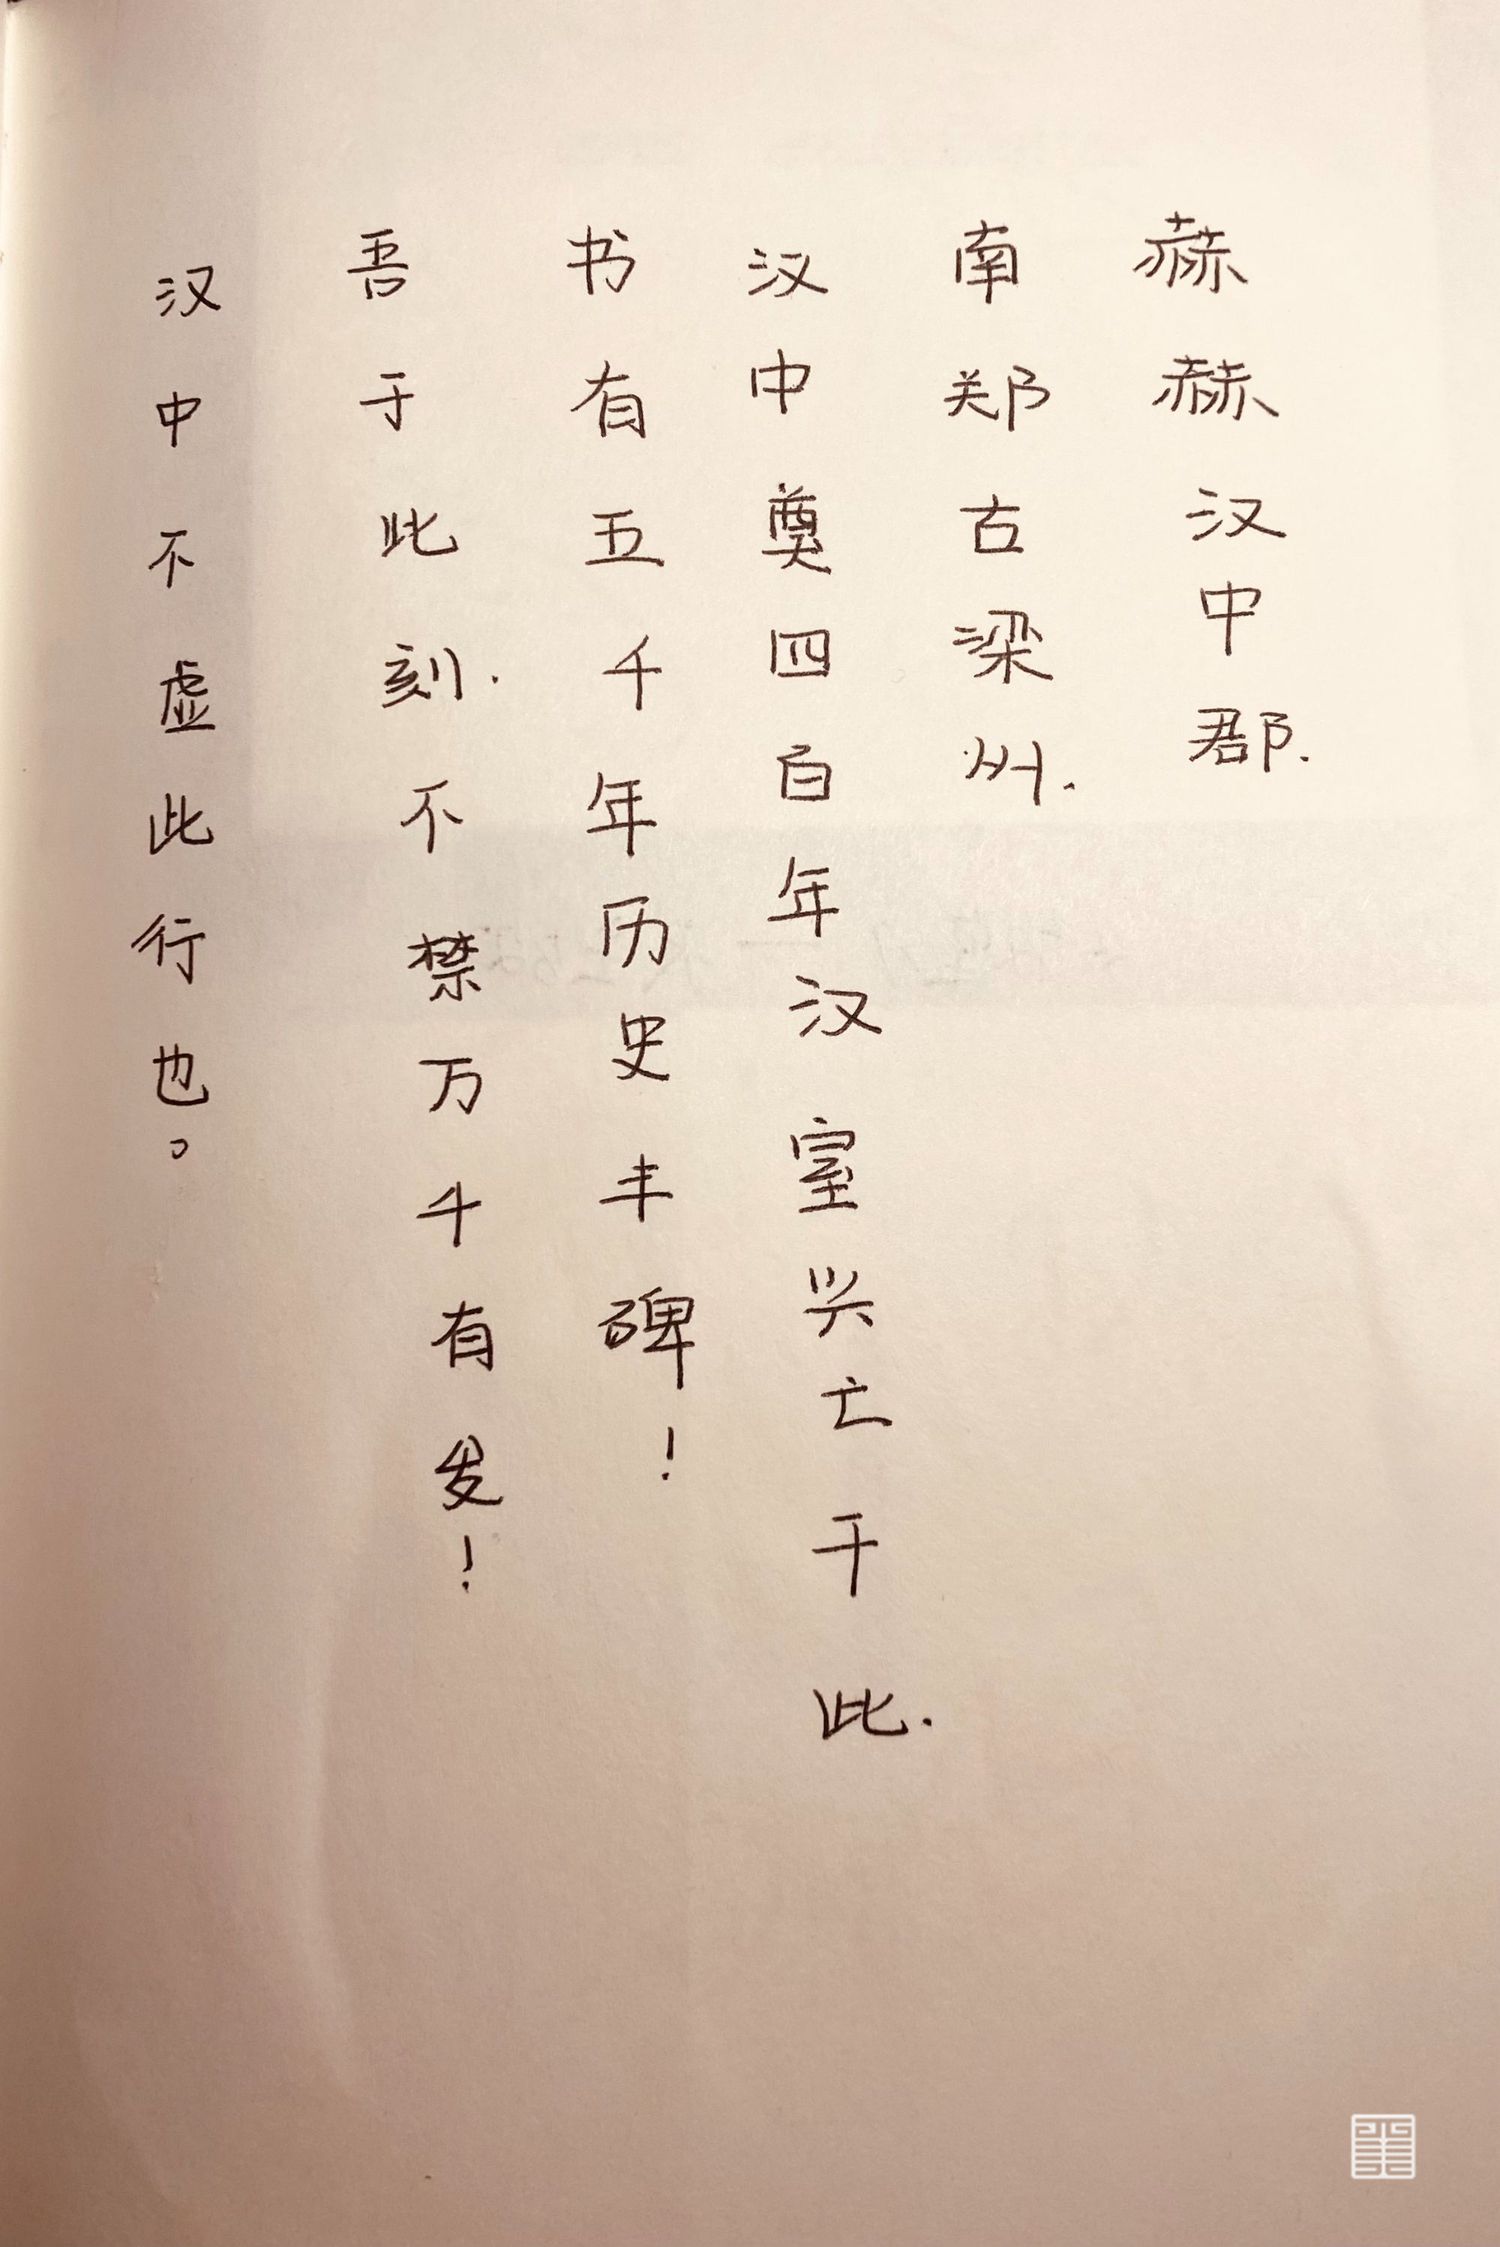 赫赫汉中郡.
南郑古梁州.
汉中奠四百年汉室兴亡于此.
书有五千年历史丰碑！
吾于此刻.不禁万千有发！
汉中不虚此行也。